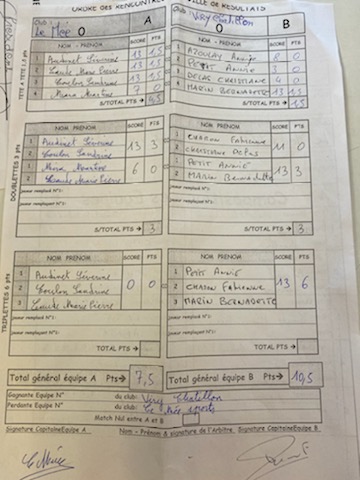 ORDRE DES RENCONTRES
FEUILLE DE RESULTATS
Club : A
Le Mée 0
Club : B
Viry Chatillon 0
TÊTE A TÊTE 1,5 pts
NOM - PRENOM SCORE PTS
1 Audinet Séverine 13 1,5
2 13 1,5
3 Coulon Sandrine 13 1,5
4 7 0
S/TOTAL PTS → 4,5
NOM - PRENOM SCORE PTS
1 AZOULAY 8 0
2 PETIT Annie 0
3 CHRISTIANE 4 0
4 MARIN BERNADETTE 13 1,5
S/TOTAL PTS → 1,5
DOUBLETTES 3 pts
NOM PRENOM SCORE PTS
1 Audinet Séverine 13 3
Coulon Sandrine
2 6 0
joueur remplacé N°:
joueur remplaçant N°:
S/TOTAL PTS → 3
NOM PRENOM SCORE PTS
1 Fabienne 11 0
CHRISTIANE
2 PETIT Annie 13 3
MARIN Bernadette
joueur remplacé N°:
joueur remplaçant N°:
S/TOTAL PTS → 3
TRIPLETTES 6 pts
NOM PRENOM SCORE PTS
1 Audinet Séverine
2 Coulon Sandrine 0 0
3
joueur remplacé N°1:
joueur remplaçant N°1:
TOTAL PTS →
NOM PRENOM SCORE PTS
1 Petit Annie
2 Fabienne 13 6
3 MARIN BERNADETTE
joueur remplacé N°1:
joueur remplaçant N°1:
TOTAL PTS →
Total général équipe A Pts→ 7,5
Total général équipe B Pts→ 10,5
Gagnante Equipe N° du club: Viry Chatillon
Perdante Equipe N° du club: Le Mée sports
Match Nul entre A et B
Signature Capitaine Equipe A Nom - Prénom & signature de l'Arbitre Signature Capitaine Equipe B